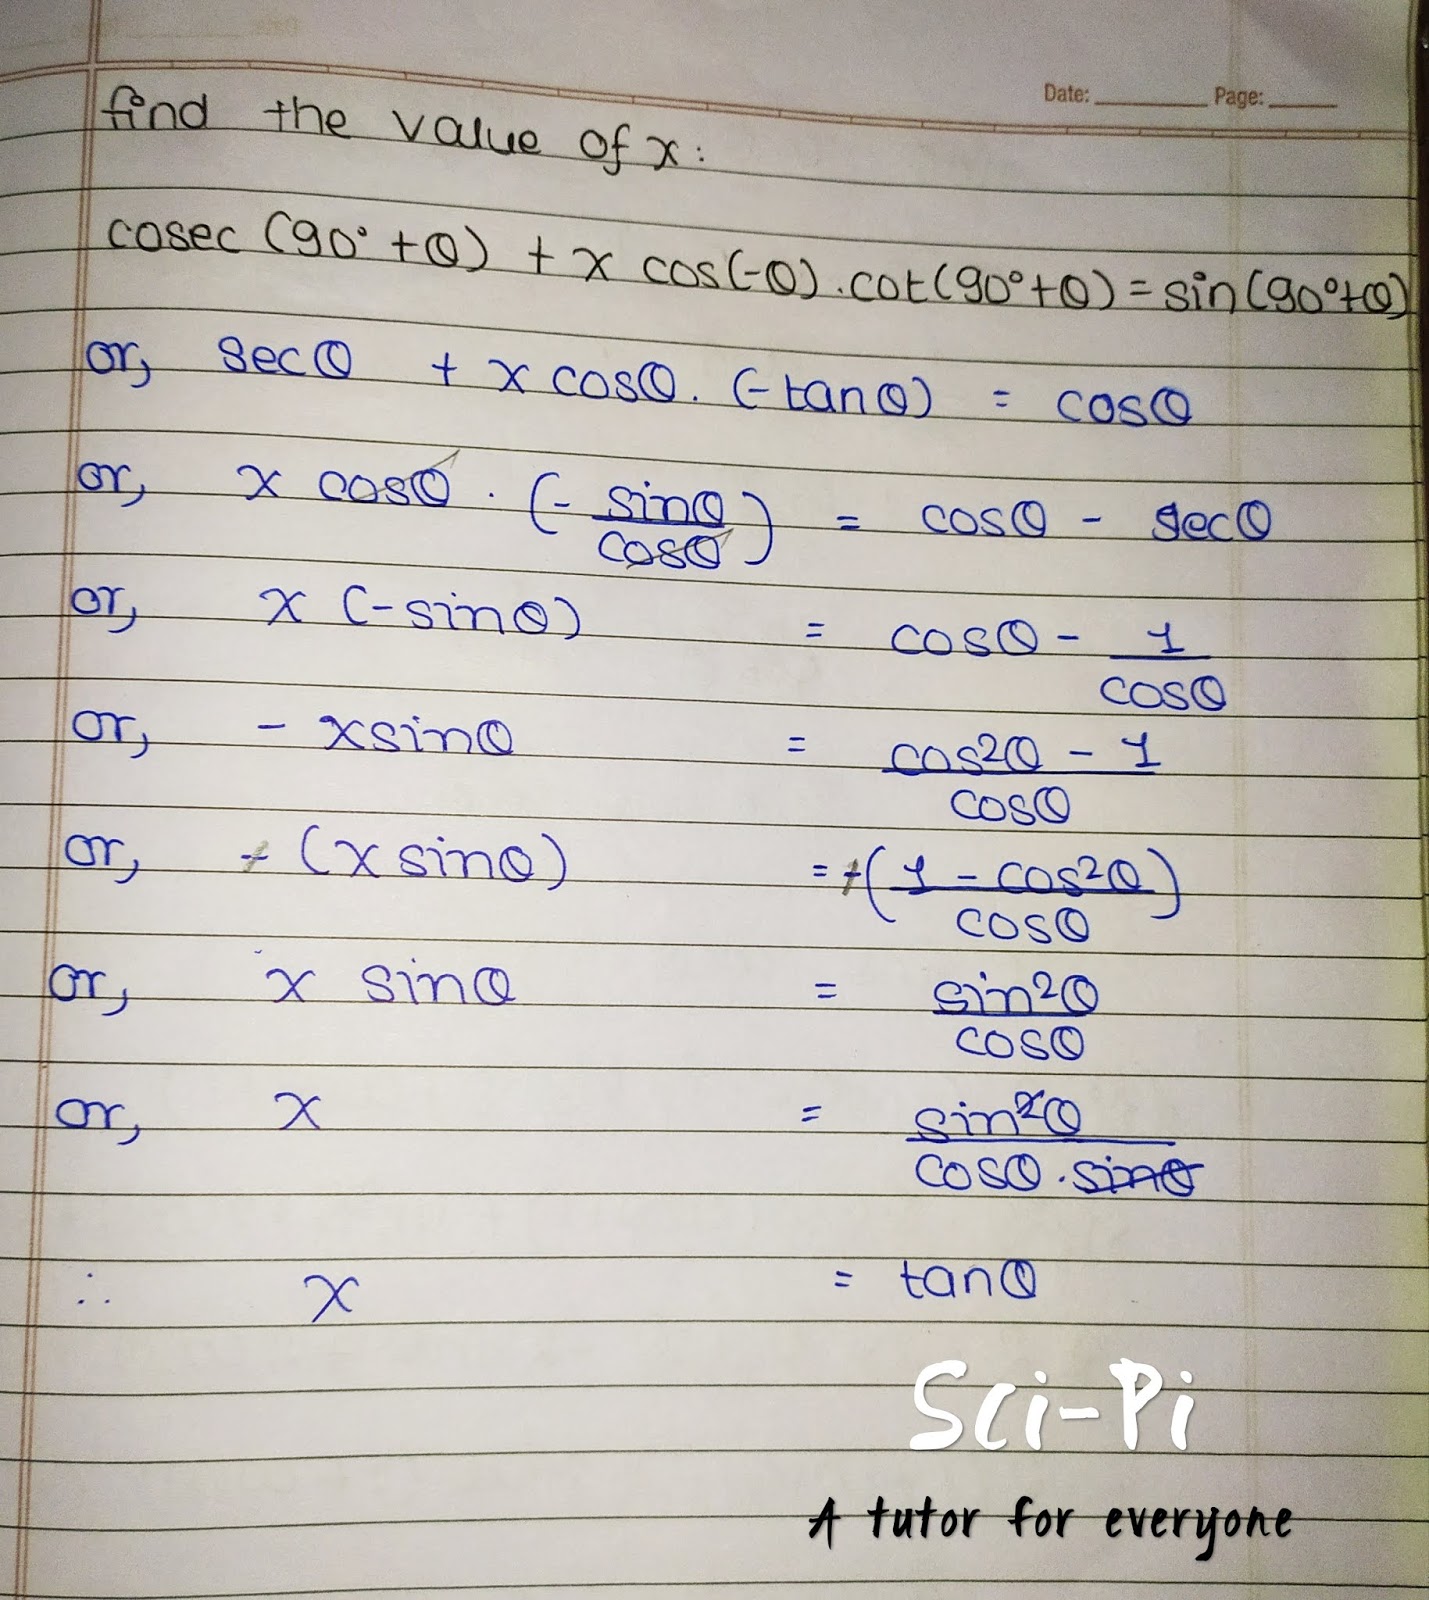 Date: ________ Page: _____
find the value of x:
cosec (90° + θ) + x cos(-θ) . cot(90° + θ) = sin(90° + θ)
or, secθ + x cosθ . (-tanθ) = cosθ
or, x cosθ . (- sinθ/cosθ) = cosθ - secθ
or, x (-sinθ) = cosθ - 1/cosθ
or, - x sinθ = cos²θ - 1/cosθ
or, - (x sinθ) = -(1 - cos²θ/cosθ)
or, x sinθ = sin²θ/cosθ
or, x = sin²θ/cosθ . sinθ
∴ x = tanθ
Sci-Pi
A tutor for everyone